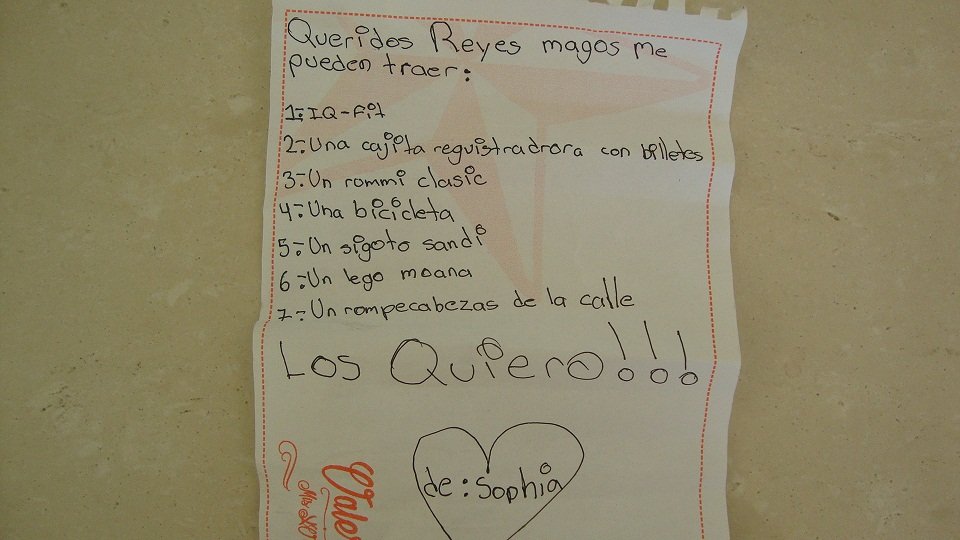 Queridos Reyes magos me
pueden traer:
1:IQ-Fit
2:Una cajita reguistradrora con billetes
3:Un rommi clasic
4:Una bicicleta
5:Un sigoto sandi
6:Un lego moana
7:Un rompecabezas de la calle
Los Quiero!!!
de: Sophia